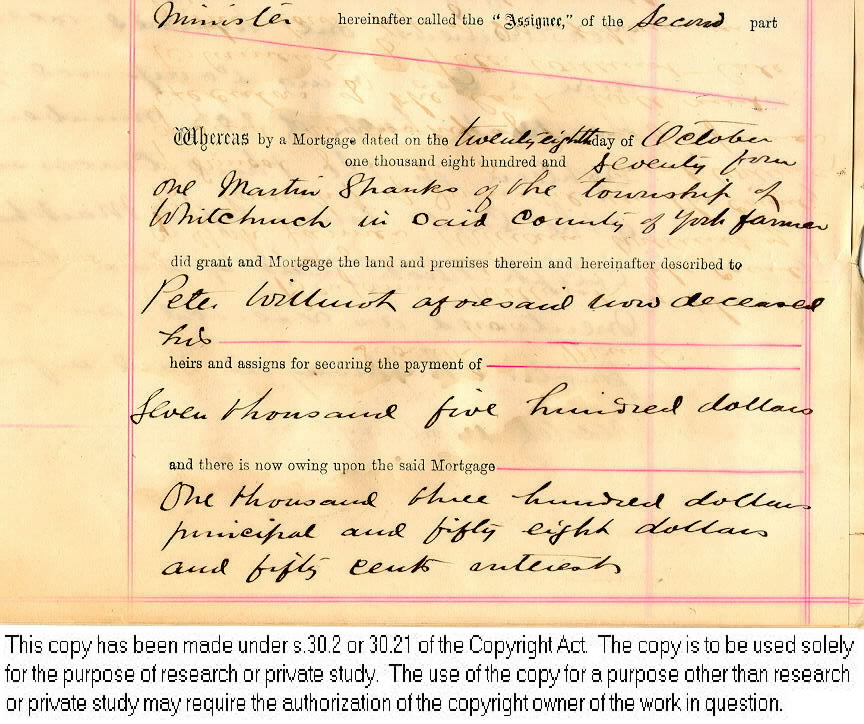 Minister hereinafter called the "Assignee," of the Second part
Whereas by a Mortgage dated on the twenty eighth day of October
one thousand eight hundred and seventy four
one Martin Shanks of the township of
Whitchurch in said County of York farmer
did grant and Mortgage the land and premises therein and hereinafter described to
Peter Willmot aforesaid now deceased
his
heirs and assigns for securing the payment of
Seven thousand five hundred dollars
and there is now owing upon the said Mortgage
One thousand three hundred dollars
principal and fifty eight dollars
and fifty cents interest
This copy has been made under s.30.2 or 30.21 of the Copyright Act. The copy is to be used solely
for the purpose of research or private study. The use of the copy for a purpose other than research
or private study may require the authorization of the copyright owner of the work in question.